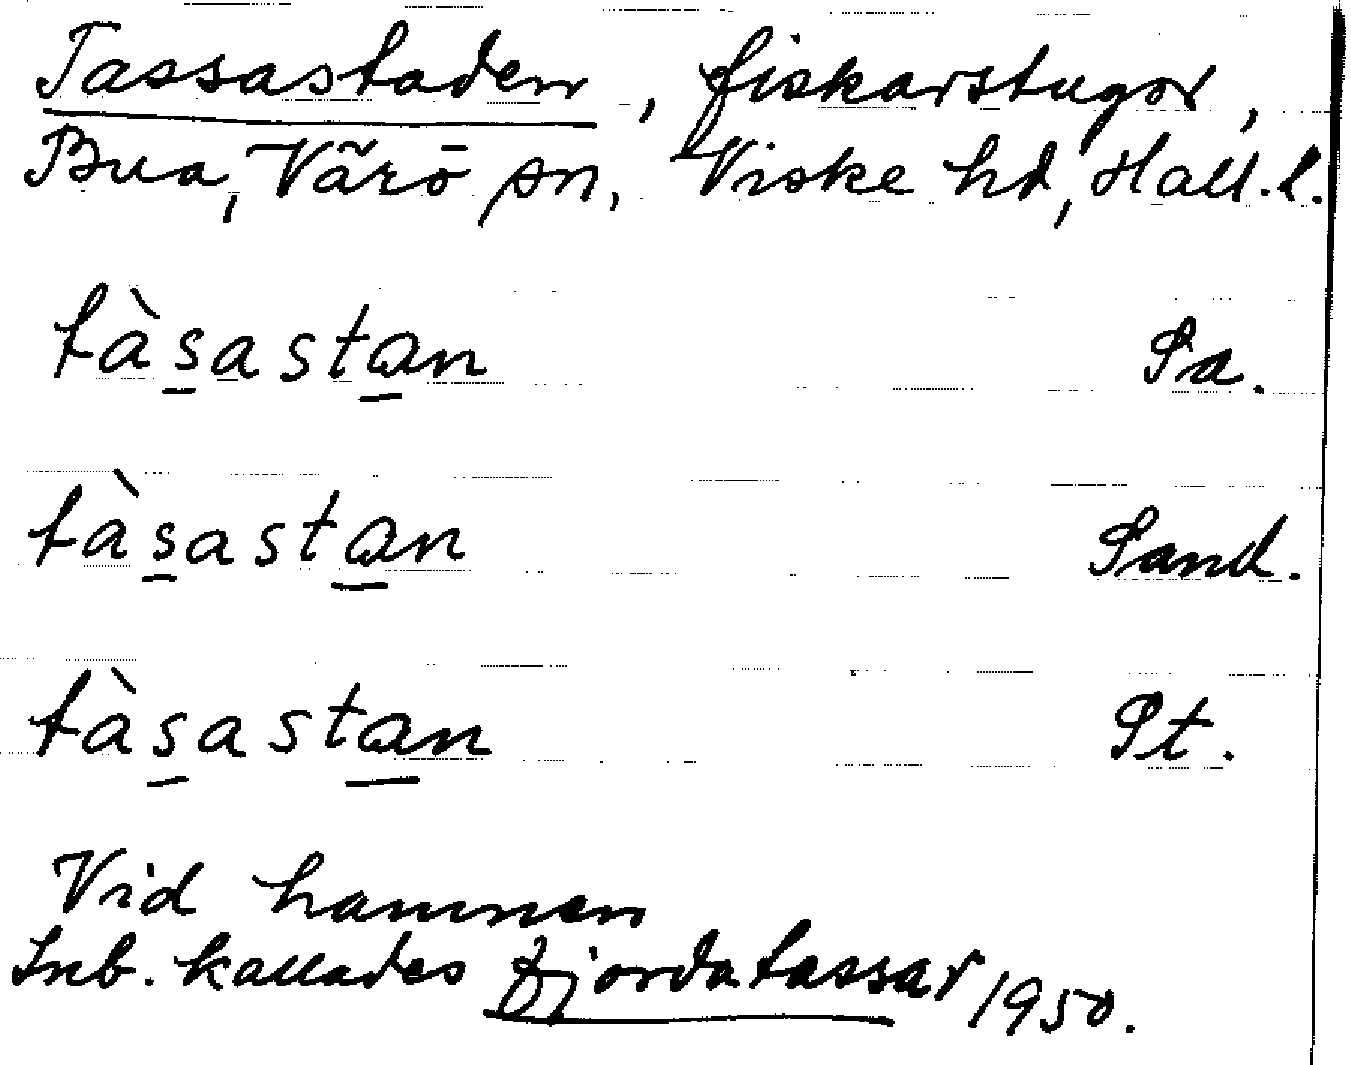 Tassastaden, fiskarstugor,
Bua, Värö sn, Viske hd, Hall. l.
tàs̲asta̲n Sa.
tàs̲asta̲n Sand.
tàs̲asta̲n Pt.
Vid hamnen
Inb. kallades fjordatassar 1950.